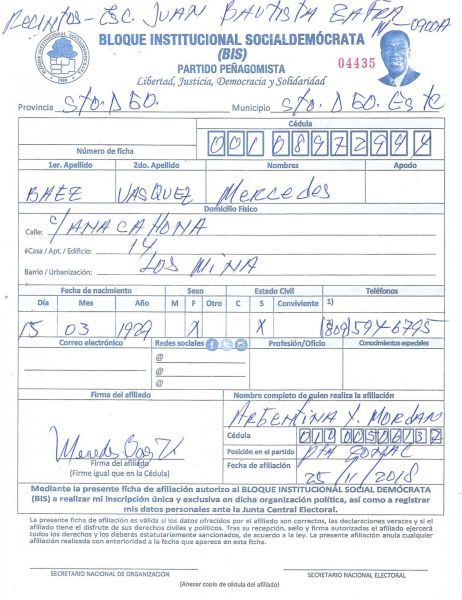 Recintos - Esc. JUAN BAUTISTA ZAFRA
Nº-0900A
BLOQUE INSTITUCIONAL SOCIALDEMÓCRATA
(BIS)
PARTIDO PEÑAGOMISTA
Libertad, Justicia, Democracia y Solidaridad
04435
Provincia Sto. DGO. Municipio Sto. DGO. Este
Cédula
Número de ficha
1er. Apellido 2do. Apellido Nombres Apodo
BAEZ VASQUEZ Mercedes
Domicilio Físico
Calle: C/ANACAHONA
#Casa / Apt. / Edificio: 14
Barrio / Urbanización: LOS MINA
Fecha de nacimiento Sexo Estado Civil Teléfonos
Día Mes Año M F Otro C S Conviviente 1)
15 03 1929 X X (809) 594-6795
Correo electrónico Redes sociales Profesión/Oficio Conocimientos especiales
@
@
@
Firma del afiliado Nombre completo de quien realiza la afiliación
ARGENTINA Y. MORDAN
Cédula
Posición en el partido
Firma del afiliado
(Firme igual que en la Cédula)
Fecha de afiliación 25/11/2018
Mediante la presente ficha de afiliación autorizo al BLOQUE INSTITUCIONAL SOCIAL DEMÓCRATA
(BIS) a realizar mi inscripción única y exclusiva en dicha organización política, así como a registrar
mis datos personales ante la Junta Central Electoral.
La presente ficha de afiliación es válida si los datos ofrecidos por el afiliado son correctos, las declaraciones veraces y si el
afiliado tiene el disfrute de sus derechos civiles y políticos. Tras su recepción, sello y firma autorizados el afiliado ejercerá
todos los derechos y los deberes estatutariamente sancionados, de acuerdo a la ley. La presente afiliación anula cualquier
afiliación realizada con anterioridad a la fecha que aparece en esta ficha.
SECRETARIO NACIONAL DE ORGANIZACIÓN SECRETARIO NACIONAL ELECTORAL
(Anexar copia de cédula del afiliado)